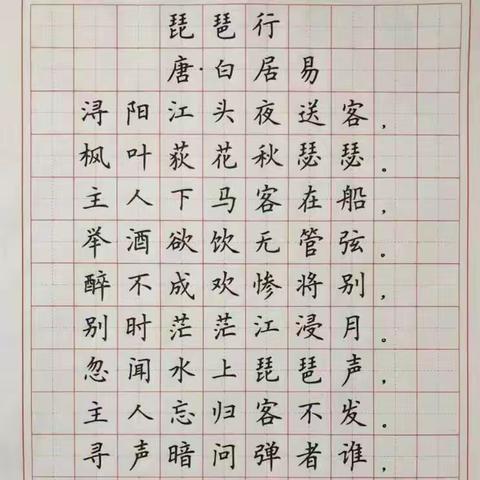 琵琶行
唐·白居易
浔阳江头夜送客,
枫叶荻花秋瑟瑟。
主人下马客在船,
举酒欲饮无管弦。
醉不成欢惨将别,
别时茫茫江浸月。
忽闻水上琵琶声,
主人忘归客不发。
寻声暗问弹者谁,